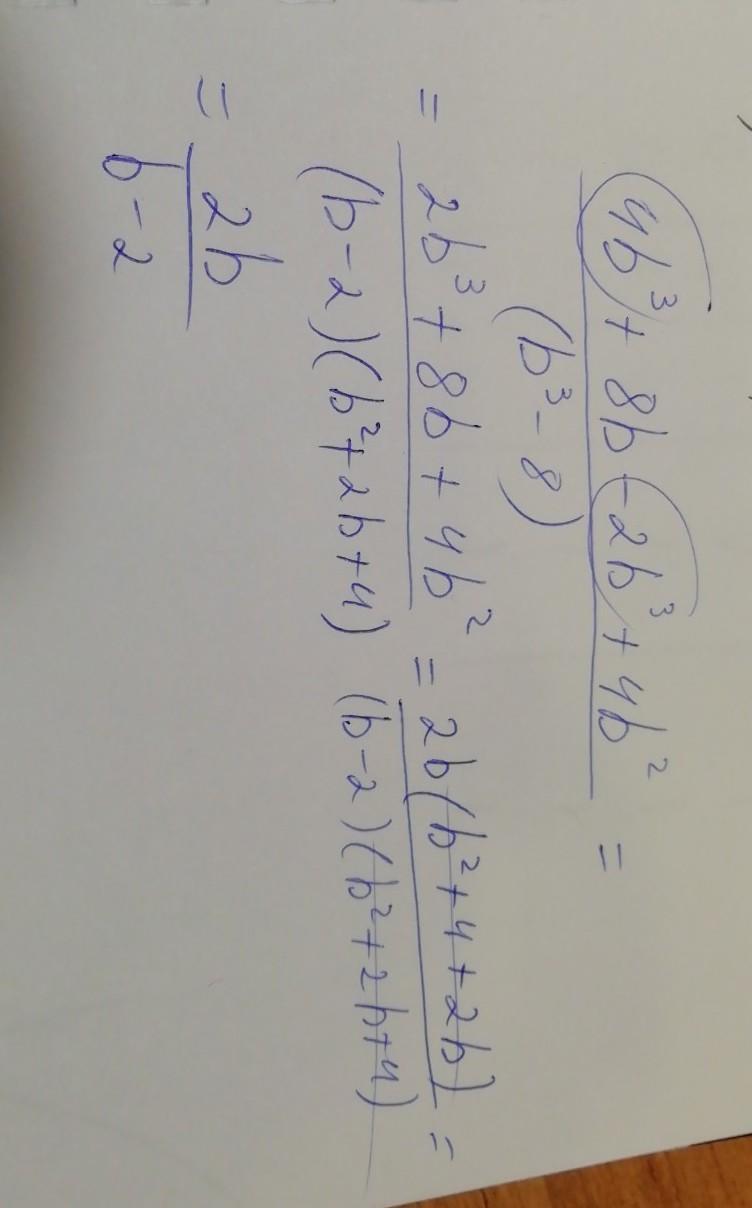 4b³ + 8b - 2b³ + 4b² =
(b³ - 8)
= 2b³ + 8b + 4b² = 2b(b² + 4 + 2b) =
(b - 2)(b² + 2b + 4) (b - 2)(b² + 2b + 4)
= 2b
b - 2